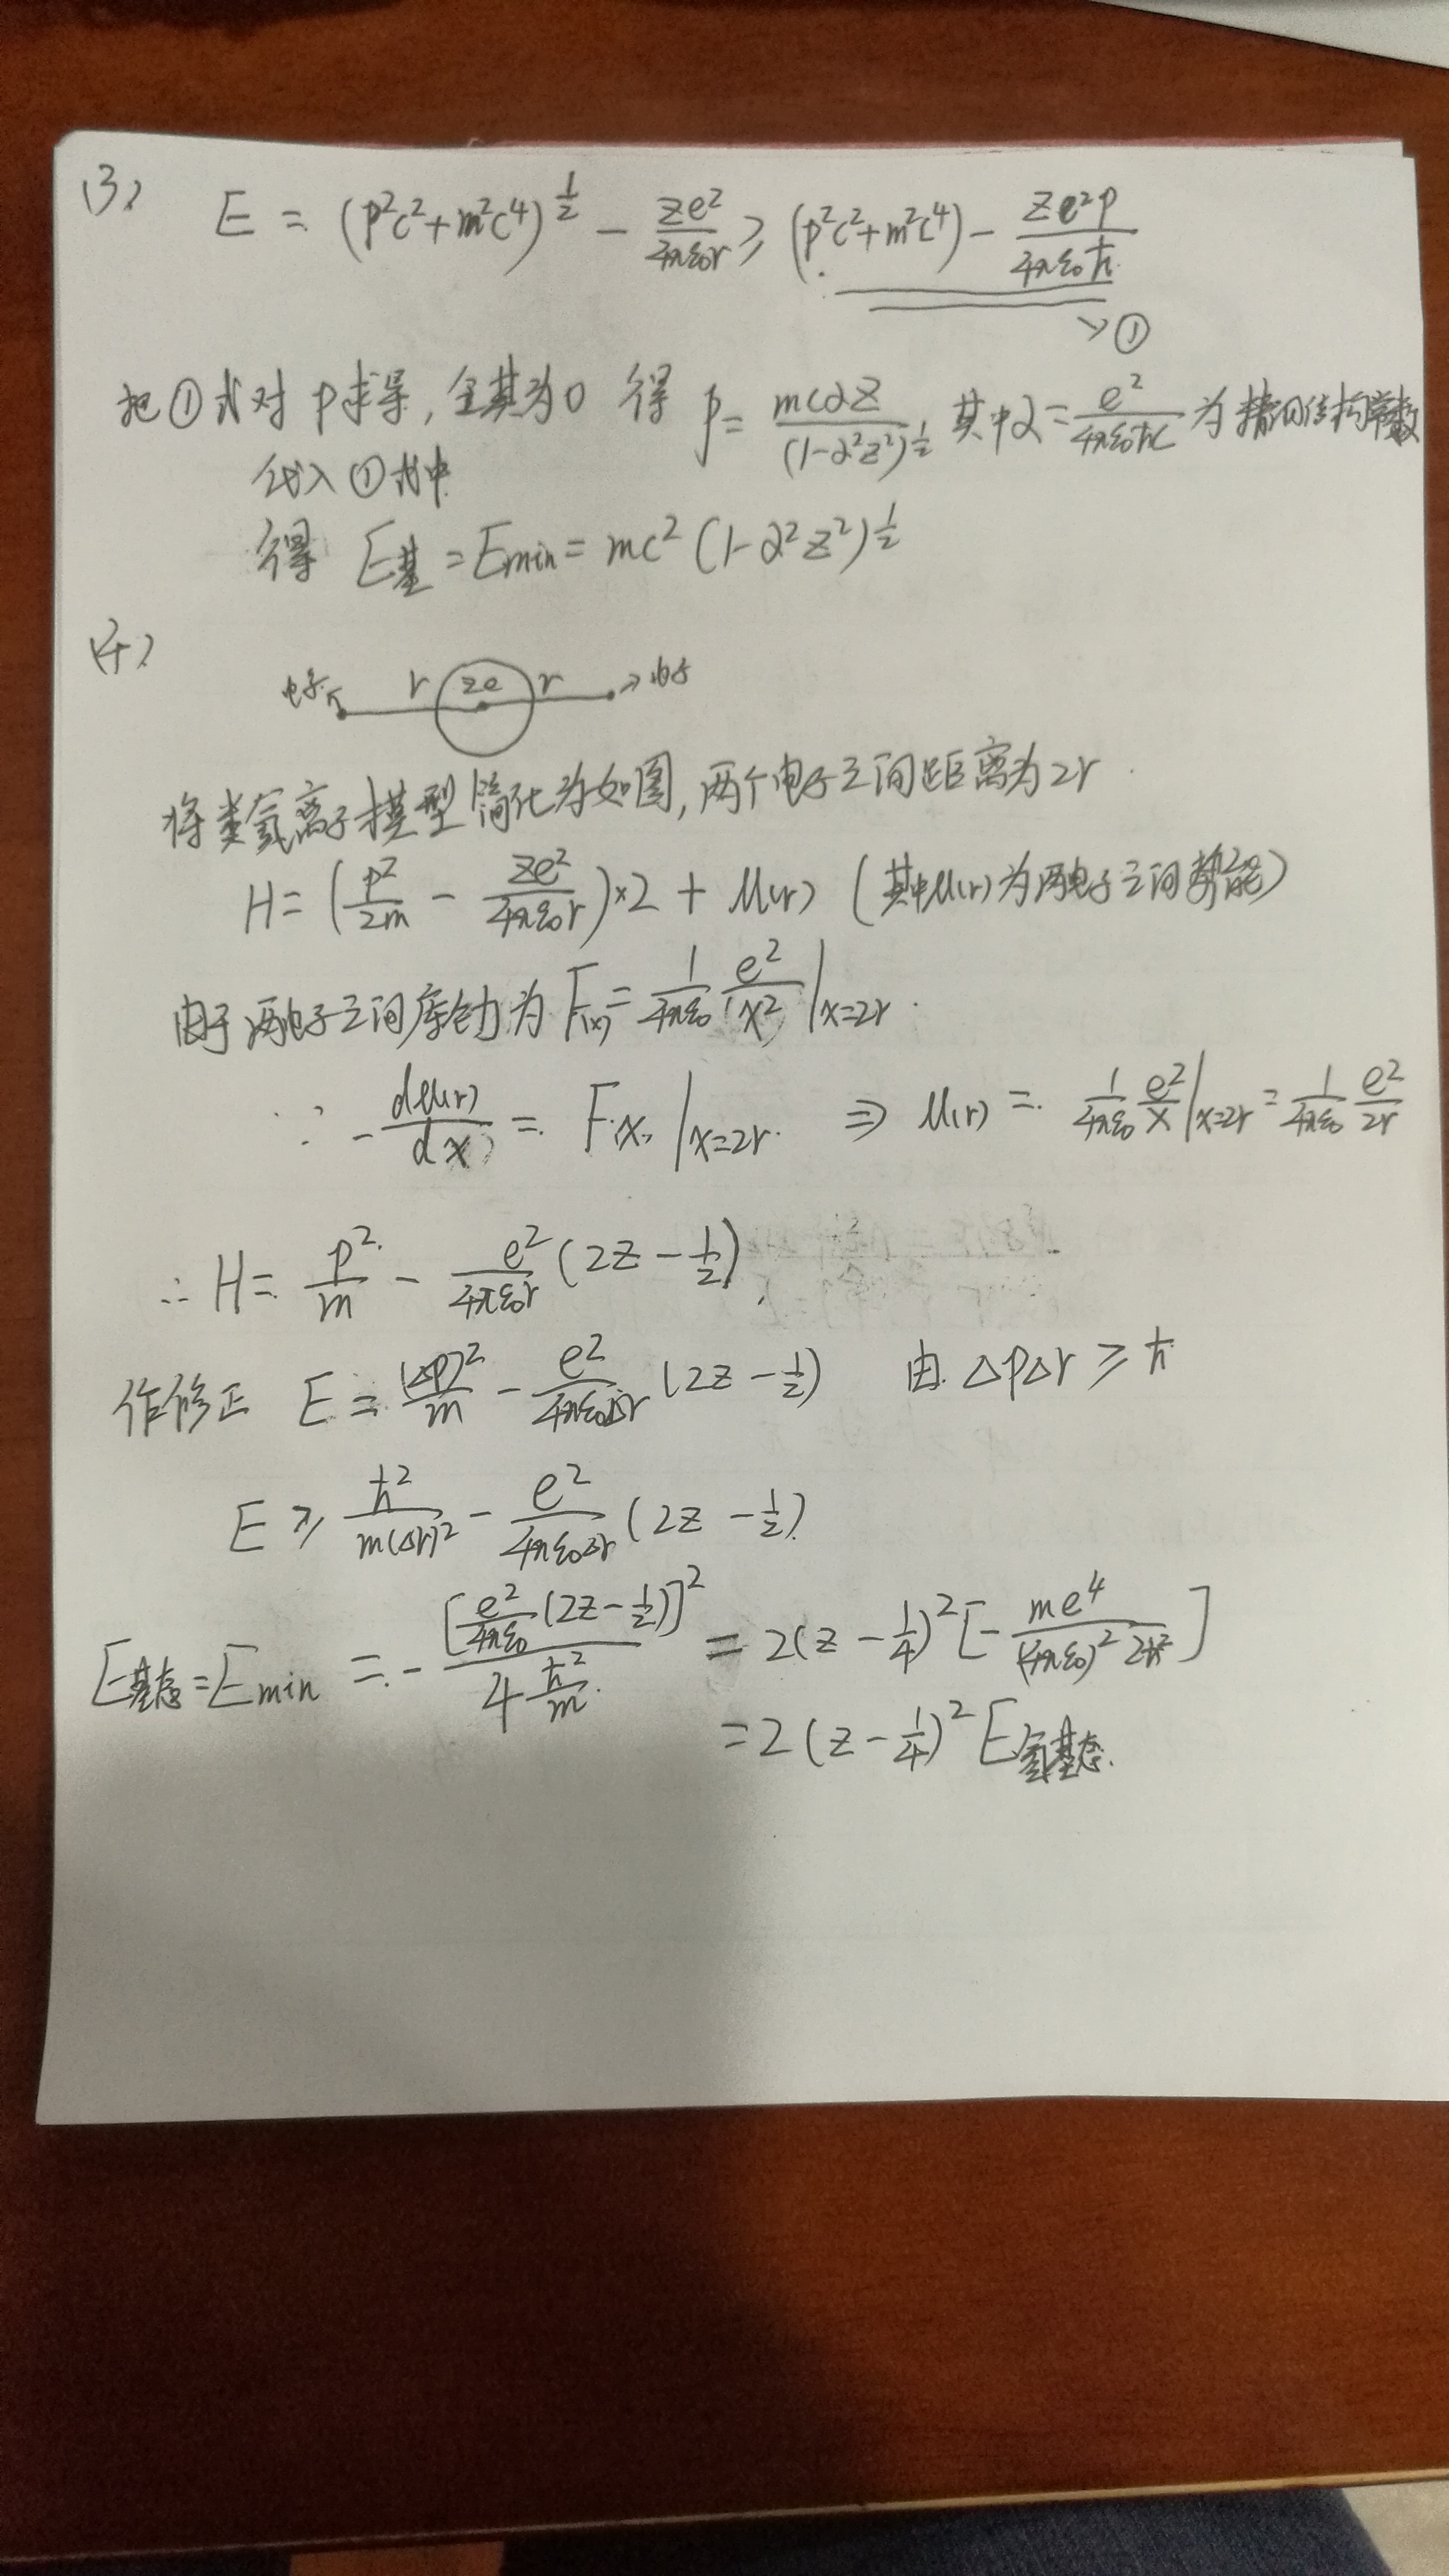 (3) E = (p²c²+m²c⁴)^{1/2} − Ze²/4πε₀r ≥ (p²c²+m²c⁴) − Ze²p/4πε₀ħ
→①
把①式对p求导,令其为0 得 p = mcαZ/(1−α²Z²)^{1/2} 其中α = e²/4πε₀ħc 为精细结构常数
代入①式中
得 E基 = Emin = mc²(1−α²Z²)^{1/2}
(4)
电子 r Ze r 电子
将类氦离子模型简化为如图,两个电子之间距离为2r.
H = (p²/2m − Ze²/4πε₀r)×2 + U(r) (其中U(r)为两电子之间势能)
由于两电子之间库仑力为 F(x) = 1/4πε₀ e²/x² |x=2r.
∵ −dU(r)/dx = F(x) |x=2r. ⇒ U(r) = 1/4πε₀ e²/x |x=2r = 1/4πε₀ e²/2r
∴ H = p²/m − e²/4πε₀r (2Z − 1/2).
作修正 E = (Δp)²/m − e²/4πε₀Δr (2Z − 1/2) 由 ΔpΔr ≥ ħ
E ≥ ħ²/m(Δr)² − e²/4πε₀Δr (2Z − 1/2)
E基态 = Emin = − [e²/4πε₀ (2Z − 1/2)]² / 4 ħ²/m = 2(Z − 1/4)² [− me⁴/(4πε₀)² 2ħ²]
= 2(Z − 1/4)² E氢基态.